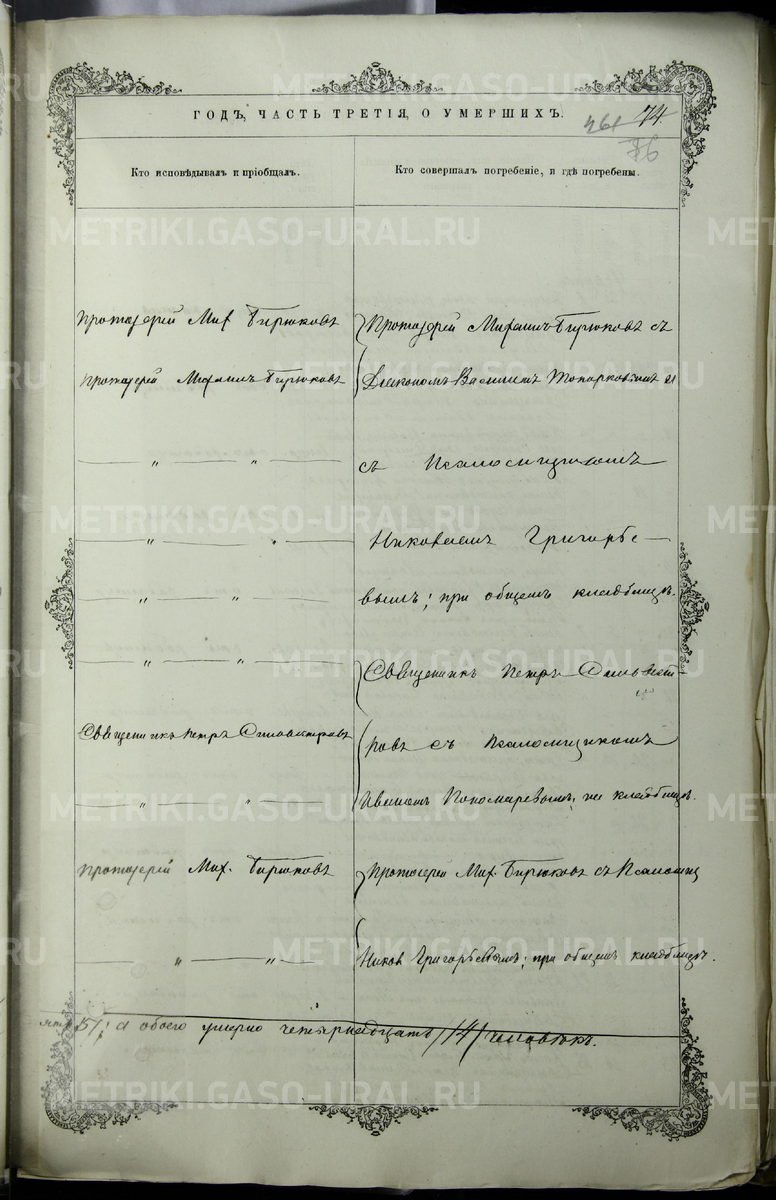 METRIKI.GASO-URAL.RU
ГОДЪ, ЧАСТЬ ТРЕТІЯ, О УМЕРШИХЪ.
74.
Кто исповѣдывалъ и пріобщалъ.
Кто совершалъ погребеніе, и гдѣ погребены.
Протоіерей Мих Бирюковъ
Протоіерей Михаилъ Бирюковъ
— „ — „ —
— „ — „ —
— „ — „ —
— „ — „ —
Священникъ Петръ Сильвестровъ
— „ — „ —
Протоіерей Мих. Бирюковъ
— „ — „ —
Протоіерей Михаилъ Бирюковъ съ
Діакономъ Василіемъ Топорковымъ и
съ Псаломщикомъ
Николаемъ Григорье-
вымъ; при общемъ кладбищѣ.
Священникъ Петръ Сильвест
ровъ съ Псаломщикомъ
Иваномъ Пономаревымъ, на кладбищѣ.
Протоіерей Мих. Бирюковъ съ Псаломщ
Никол Григорьевымъ; при общемъ кладбищѣ.
/5/; а обоего умерло четырнадцать /14/ человѣкъ.